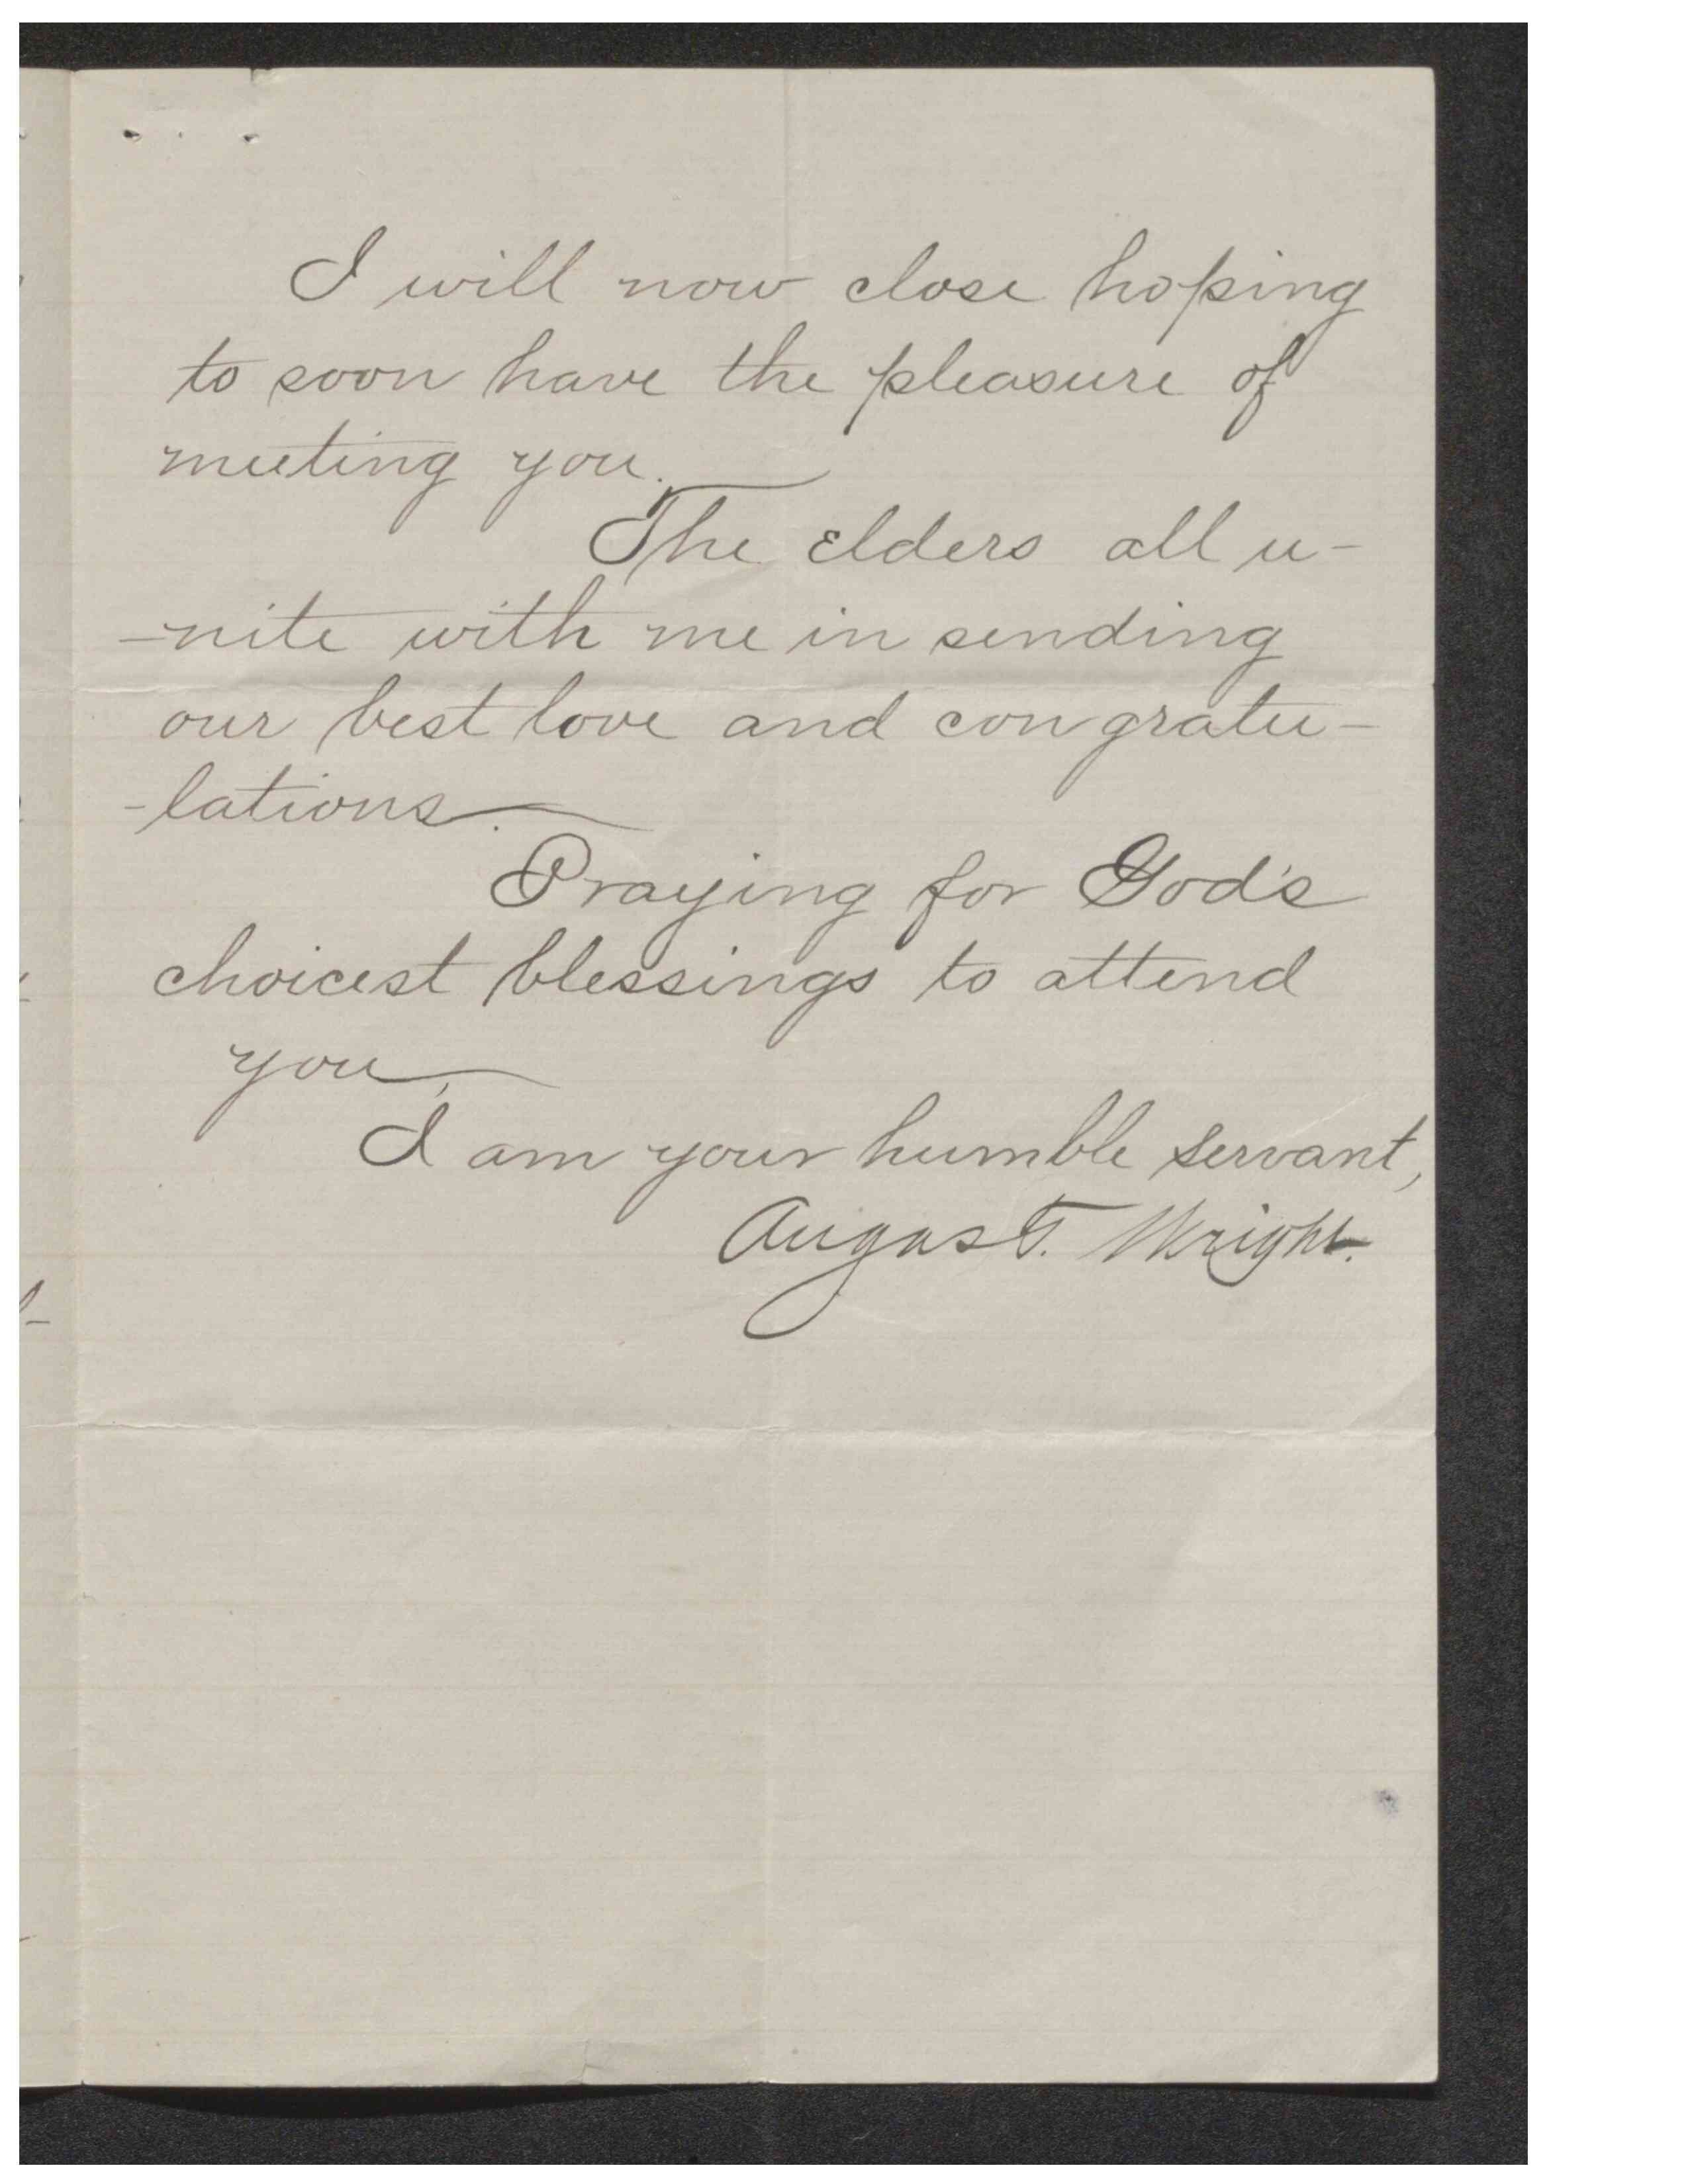 I will now close hoping
to soon have the pleasure of
meeting you.
The elders all u-
-nite with me in sending
our best love and congratu-
-lations.
Praying for God's
choicest blessings to attend
you,
I am your humble servant,
Angus T. Wright.